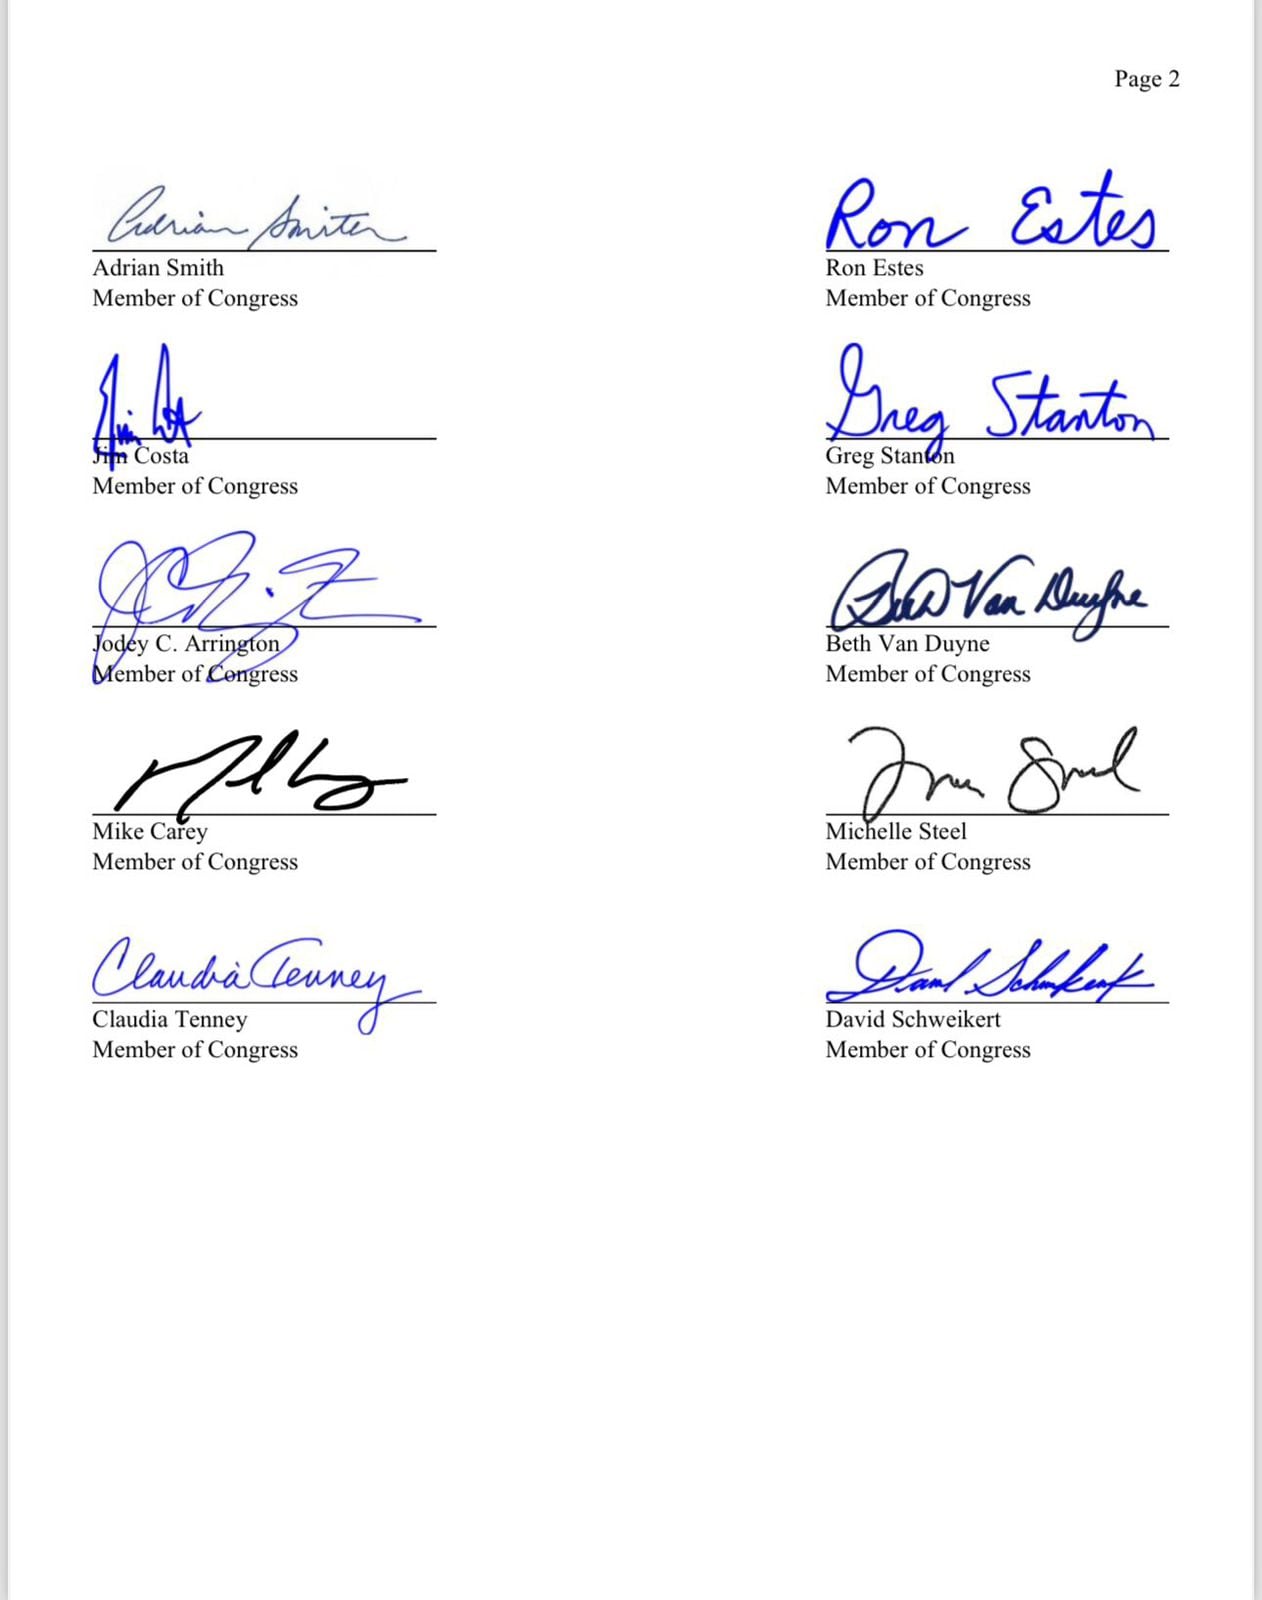 Page 2
Adrian Smith
Ron Estes
Adrian Smith
Ron Estes
Member of Congress
Member of Congress
Jim Costa
Greg Stanton
Jim Costa
Greg Stanton
Member of Congress
Member of Congress
Beth Van Duyne
Jodey C. Arrington
Beth Van Duyne
Member of Congress
Member of Congress
Mike Carey
Michelle Steel
Member of Congress
Member of Congress
Claudia Tenney
David Schweikert
Claudia Tenney
David Schweikert
Member of Congress
Member of Congress